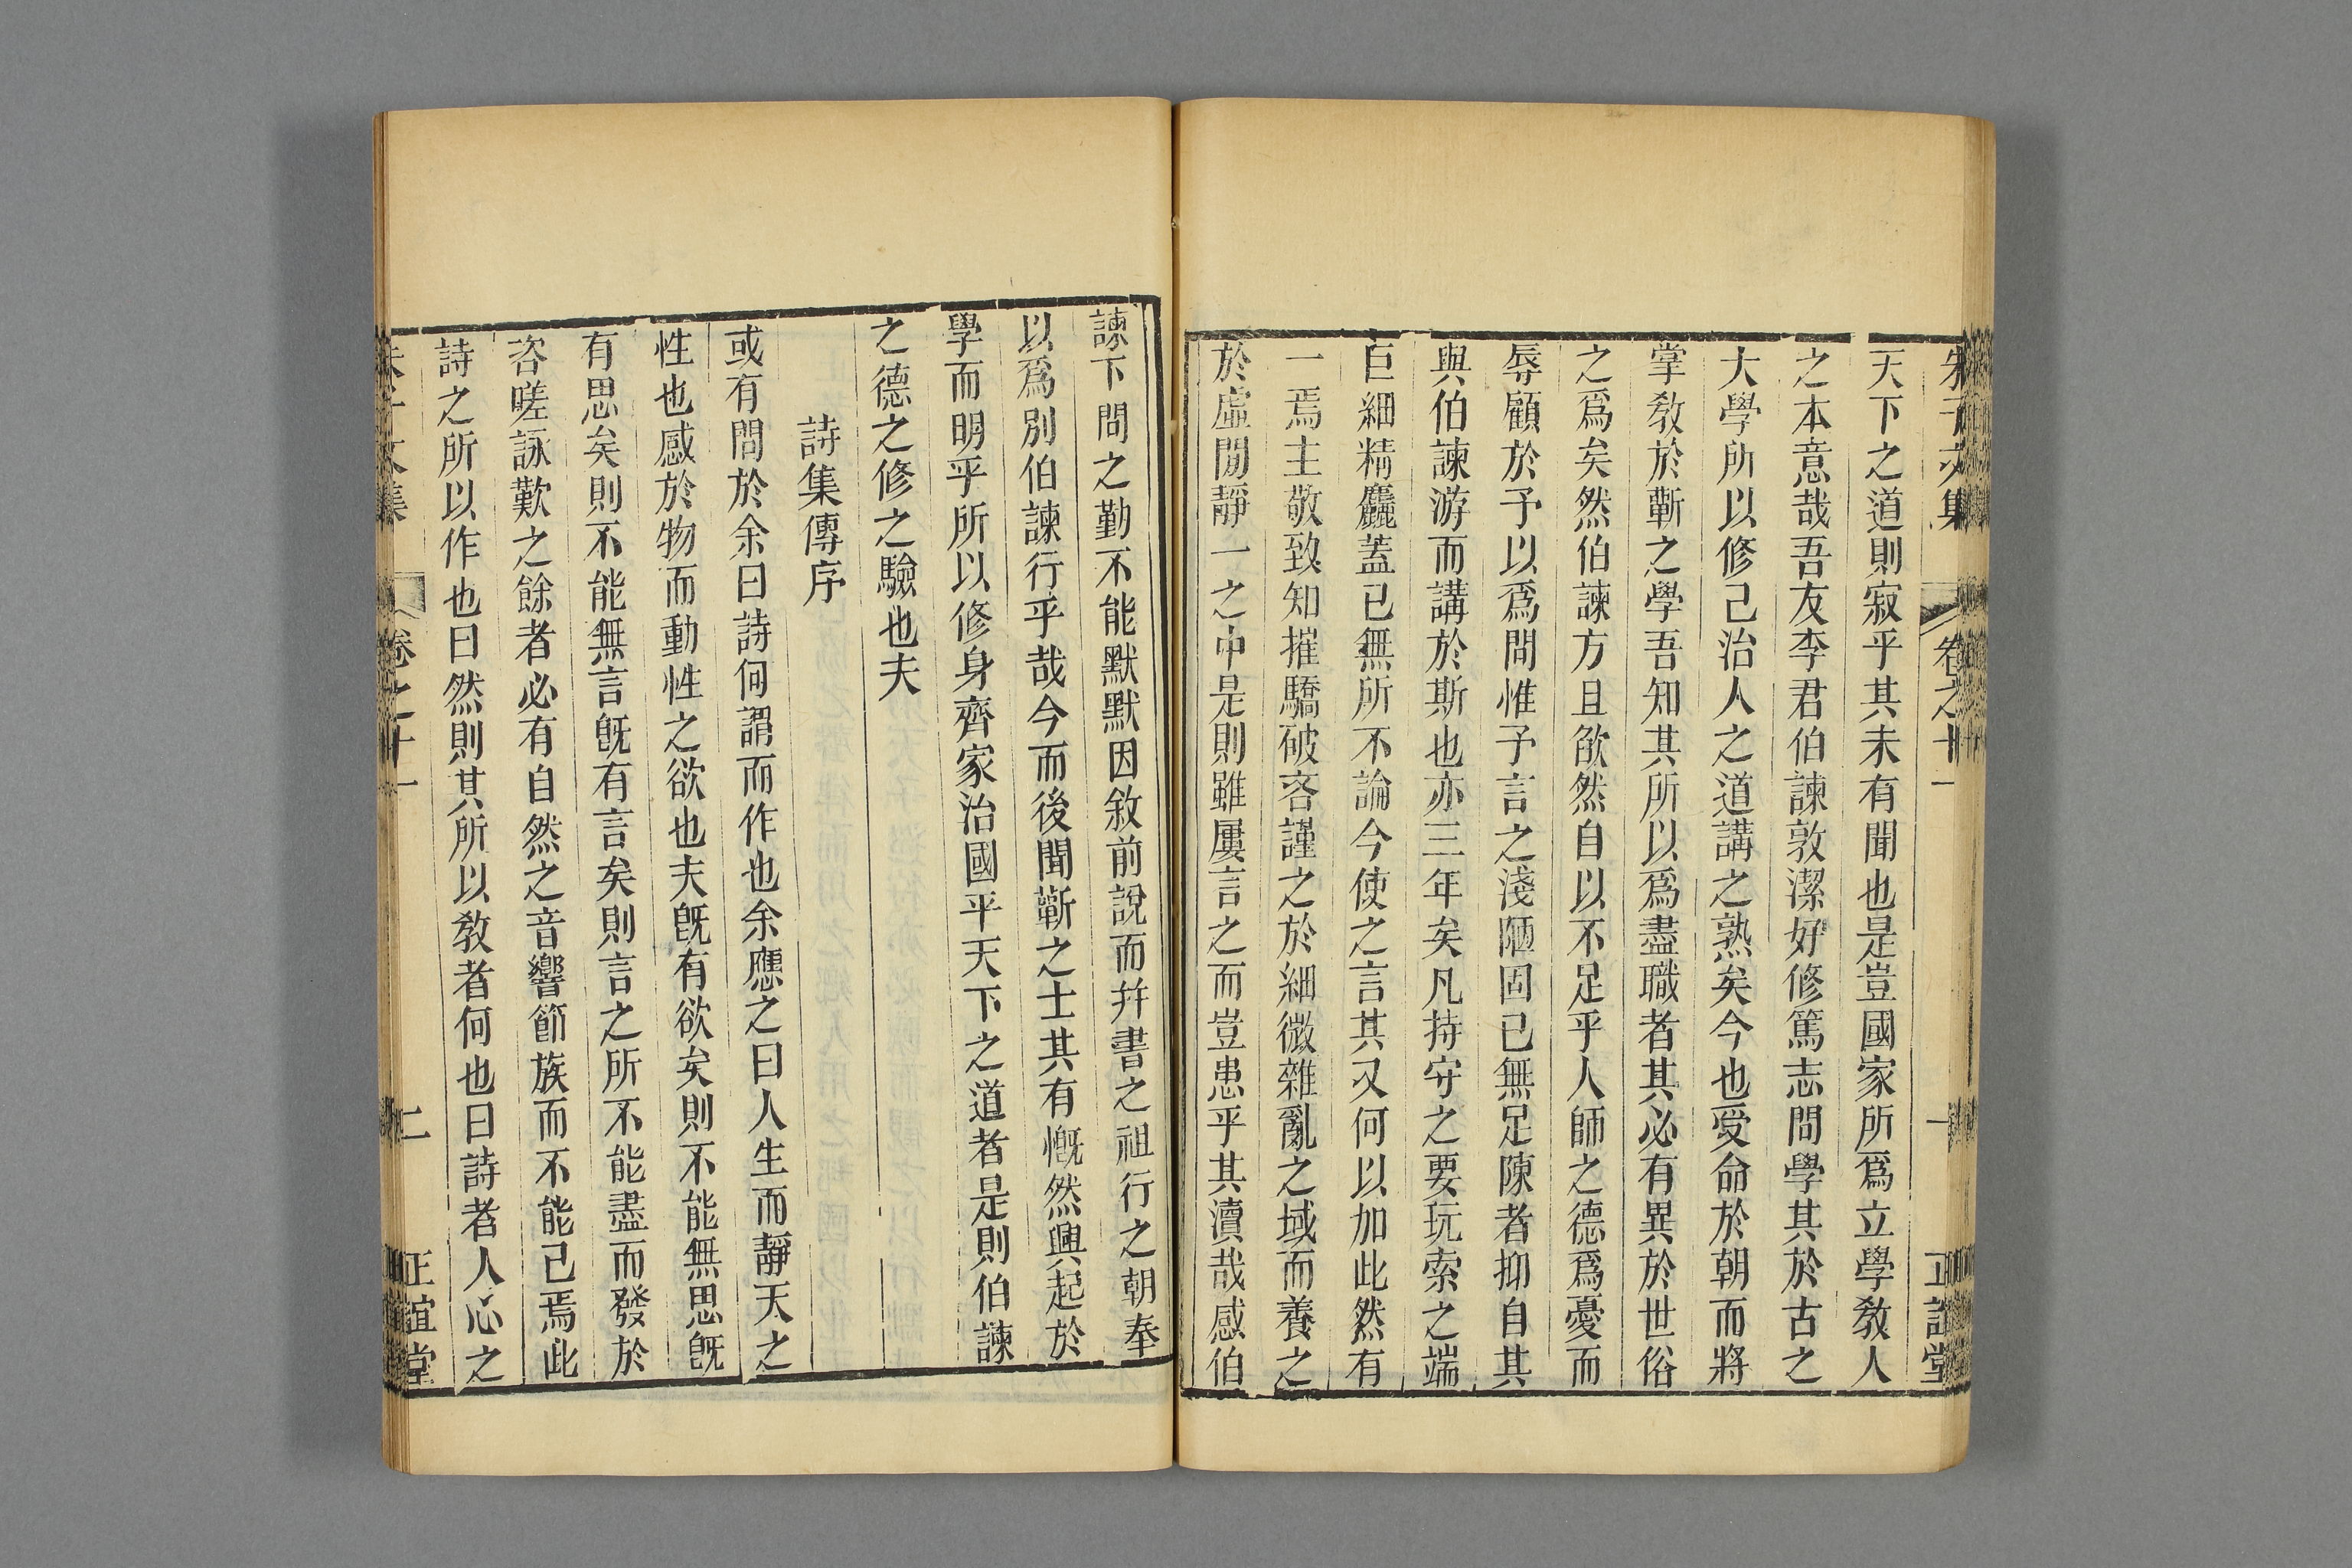 朱子文集 卷之十一 一 正誼堂
天下之道則寂乎其未有聞也是豈國家所爲立學敎人
之本意哉吾友李君伯諫敦潔好修篤志問學其於古之
大學所以修己治人之道講之熟矣今也受命於朝而將
掌敎於蘄之學吾知其所以爲盡職者其必有異於世俗
之爲矣然伯諫方且欿然自以不足乎人師之德爲憂而
辱顧於予以爲問惟予言之淺陋固已無足陳者抑自其
與伯諫游而講於斯也亦三年矣凡持守之要玩索之端
巨細精麤蓋已無所不論今使之言其又何以加此然有
一焉主敬致知摧驕破吝謹之於細微雜亂之域而養之
於虛閒靜一之中是則雖屢言之而豈患乎其瀆哉感伯
諫下問之勤不能默默因敘前說而幷書之祖行之朝奉
以爲別伯諫行乎哉今而後聞蘄之士其有慨然興起於
學而明乎所以修身齊家治國平天下之道者是則伯諫
之德之修之驗也夫
詩集傳序
或有問於余曰詩何謂而作也余應之曰人生而靜天之
性也感於物而動性之欲也夫旣有欲矣則不能無思旣
有思矣則不能無言旣有言矣則言之所不能盡而發於
咨嗟詠歎之餘者必有自然之音響節族而不能已焉此
詩之所以作也曰然則其所以敎者何也曰詩者人心之
朱子文集 卷之十一 二 正誼堂